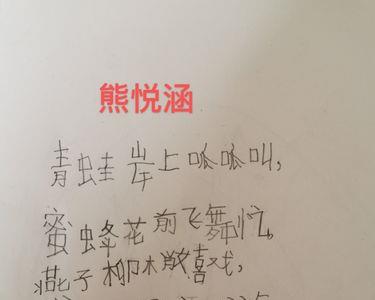 熊悦涵
青蛙岸上呱呱叫，
蜜蜂花前飞舞忙，
燕子柳林散喜戏，